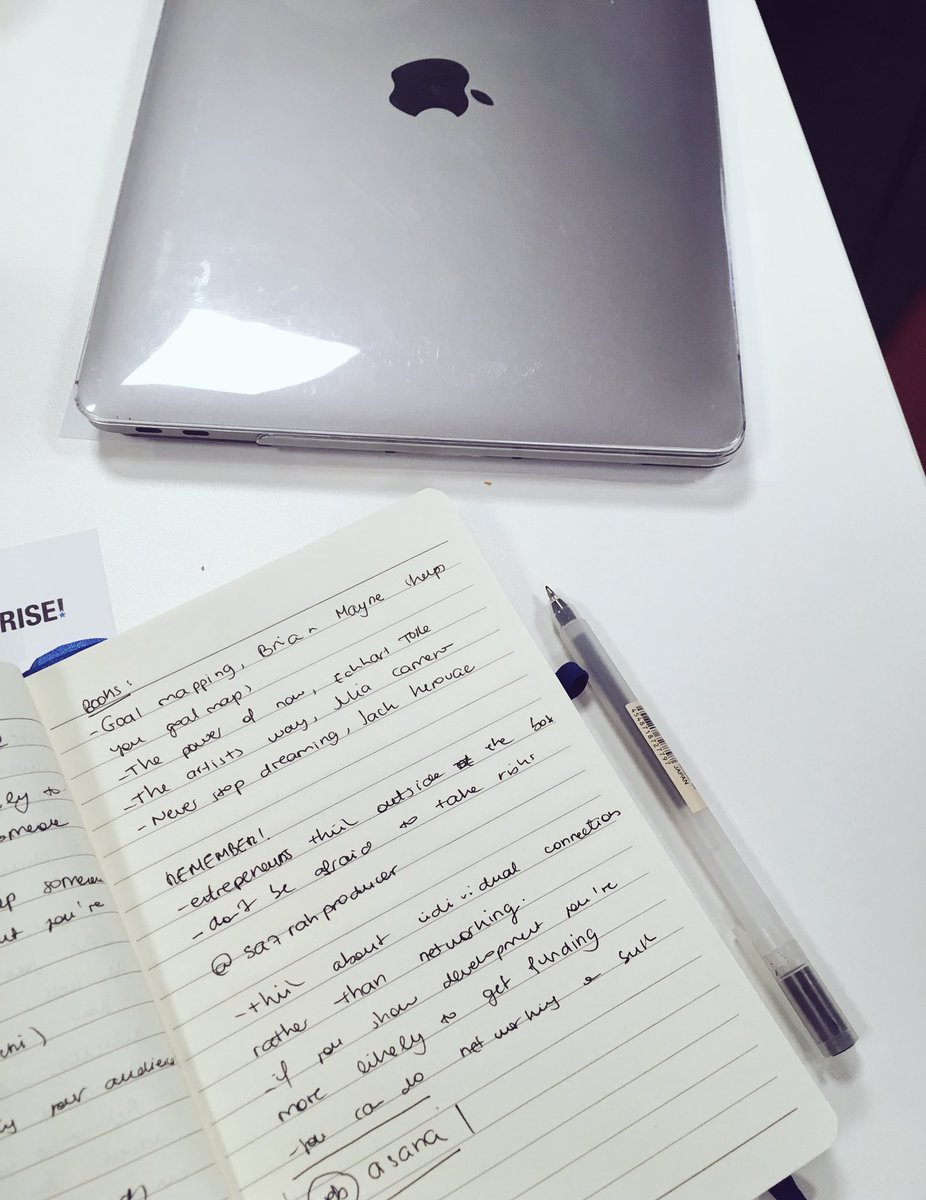 RISE!
Books:
- Goal mapping, Brian Mayne (help
you goal map)
- The power of now, Eckhart Tolle
- The artists way, Julia Cameron
- Never stop dreaming, Jack
REMEMBER!
- entrepeneurs think outside the box
- don't be afraid to take risks
@ sa7rahproducer
- think about individual connections
rather than networking.
- if you show development you're
more likely to get funding
- you can do networking a
asana
ly to
someone
someone
you're
your audience
4548718727797
JAPAN